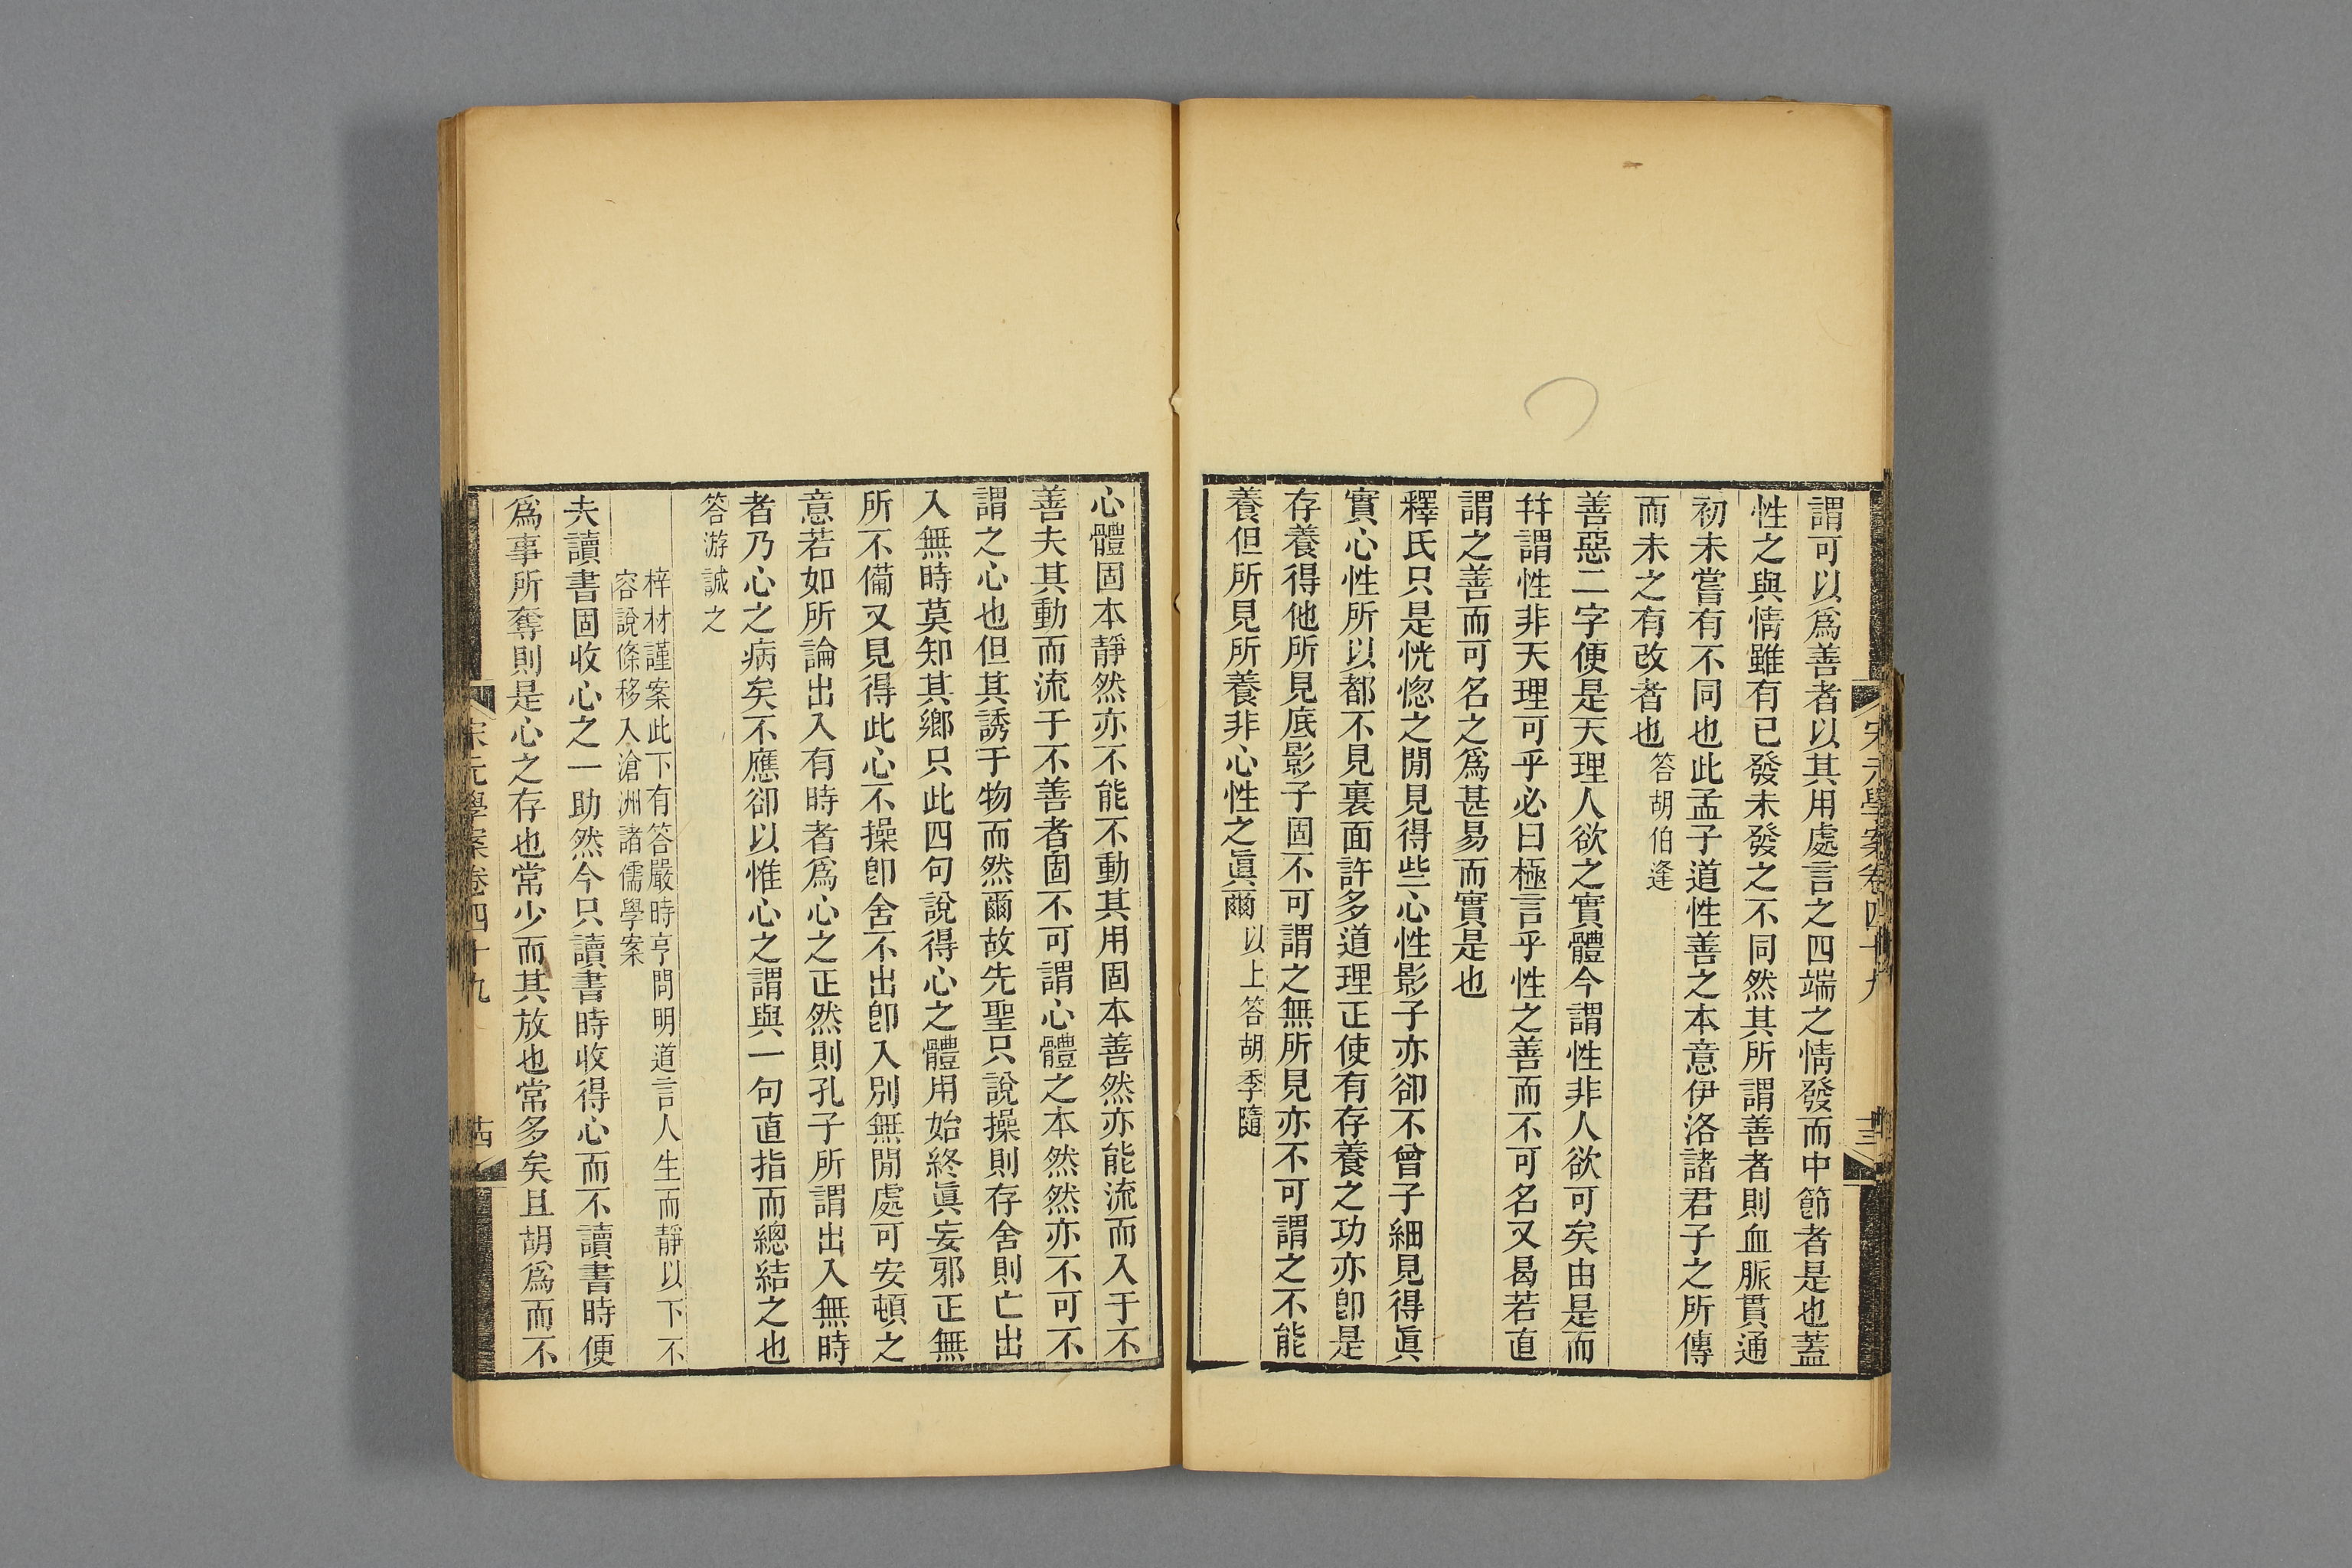 宋元學案卷四十九
謂可以爲善者以其用處言之四端之情發而中節者是也蓋
性之與情雖有已發未發之不同然其所謂善者則血脈貫通
初未嘗有不同也此孟子道性善之本意伊洛諸君子之所傳
而未之有改者也答胡伯逢
善惡二字便是天理人欲之實體今謂性非人欲可矣由是而
幷謂性非天理可乎必曰極言乎性之善而不可名又曷若直
謂之善而可名之爲甚易而實是也
釋氏只是恍惚之閒見得些心性影子亦卻不曾子細見得眞
實心性所以都不見裏面許多道理正使有存養之功亦卽是
存養得他所見底影子固不可謂之無所見亦不可謂之不能
養但所見所養非心性之眞爾以上答胡季隨
心體固本靜然亦不能不動其用固本善然亦能流而入于不
善夫其動而流于不善者固不可謂心體之本然然亦不可不
謂之心也但其誘于物而然爾故先聖只說操則存舍則亡出
入無時莫知其鄉只此四句說得心之體用始終眞妄邪正無
所不備又見得此心不操卽舍不出卽入別無閒處可安頓之
意若如所論出入有時者爲心之正然則孔子所謂出入無時
者乃心之病矣不應卻以惟心之謂與一句直指而總結之也
答游誠之
梓材謹案此下有答嚴時亨問明道言人生而靜以下不
容說條移入滄洲諸儒學案
夫讀書固收心之一助然今只讀書時收得心而不讀書時便
爲事所奪則是心之存也常少而其放也常多矣且胡爲而不
宋元學案卷四十九